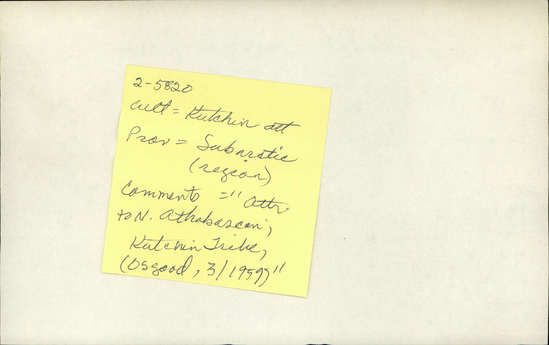 2-5820
Cult = Kutchin att
Prov = Subarctic
(region)
Comments = "Attr.
to N. Athabascan;
Kutchin Tribe,
(Osgood, 3/1959)"